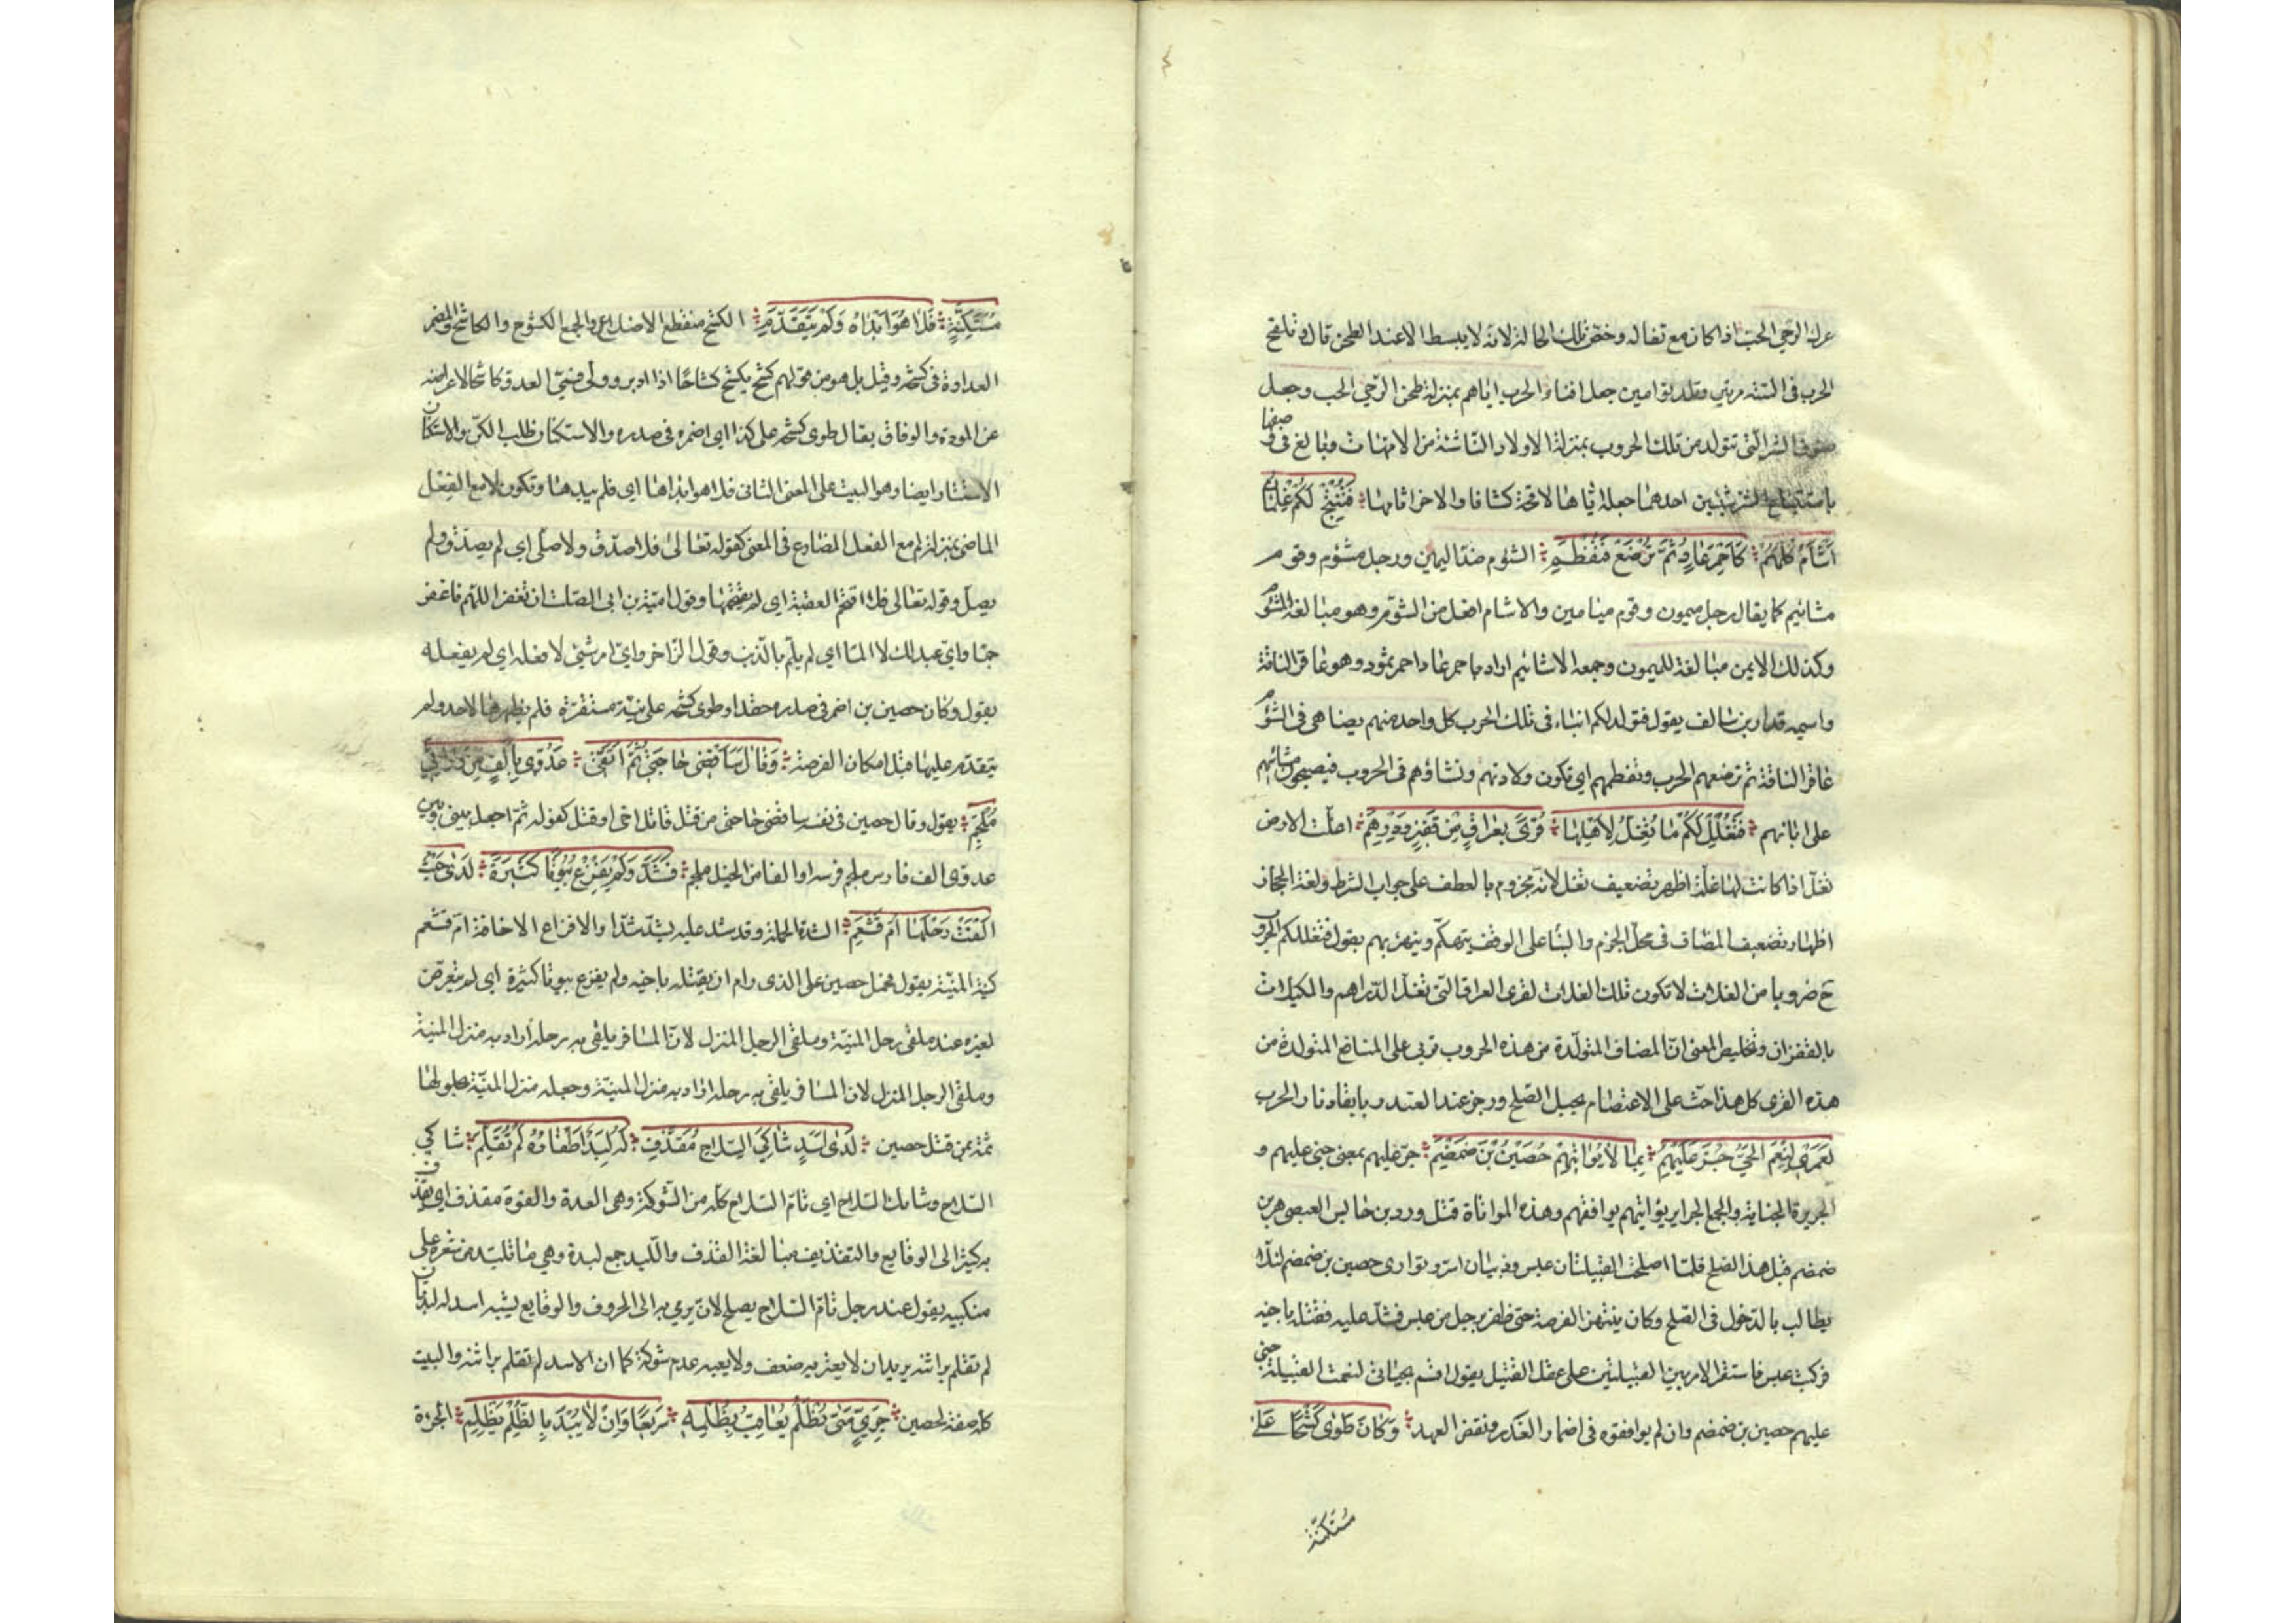 عرك الرحى الحب اذا كان مع ثفاله وخص تلك الحالة لانه لا يبسط الا عند الطحن قال وتلقح
الحرب فى السنة مرتين وتلد توامين جعل افناء الحرب اياهم بمنزلة طحن الرحى الحب وجعل
صنوف الشر التى تتولد من تلك الحروب بمنزلة الاولاد الناشئة من الامهات وبالغ فى وصفها
باستتباع الشر شيئين احدهما جعله اياها لاقحة كشافا والاخر اتامها فَتُنْتِجْ لَكُمْ غِلْمَانَ
اَشْأَمَ كُلُّهُمْ كَاَحْمَرِ عَادٍ ثُمَّ تُرْضِعْ فَتَفْطِمِ الشوم ضد اليمن ورجل مشؤم وقوم
مشائيم كما يقال رجل ميمون وقوم ميامين والاشام افعل من الشؤم وهو مبالغة المشؤم
وكذلك الايمن مبالغة لليمون وجمعه الاشائيم اراد باحمر عاد احمر ثمود وهو عاقر الناقة
واسمه قدار بن سالف يقول فتولد لكم ابناء فى تلك الحرب كل واحد منهم يضاهى فى الشؤم
عاقر الناقة ثم ترضعهم الحرب وتفطمهم اي تكون ولادتهم ونشاؤهم فى الحروب فيصبحون مشائيم
على ابائهم فَتُغْلِلْ لَكُمْ مَا تُغِلُّ لِاَهْلِهَا قُرًى بِعِرَاقٍ مِنْ قَفِيزٍ وَدِرْهَمِ اغلت الارض
تغل اذا كانت لها غلة اظهر تضعيف تغل لانه مجزوم بالعطف على جواب الشرط ولغة الحجاز
اظهار تضعيف المضاف فى محل الجزم والبناء على الوقف يتهكم ويتهزء بهم يقول فتغلل لكم الحروب
ح ضروبا من الغلات لا تكون تلك الغلات لقرى العراق التى تغل الدراهم والمكيلات
بالقفزان وتخليص المعنى ان المضاف المتولدة من هذه الحروب تربى على المنافع المتولدة من
هذه القرى كل هذا حث على الاعتصام بحبل الصلح وزجر عند الغدر بايقاد نار الحرب
لَعَمْرِى لَنِعْمَ الْحَيُّ جَرَّ عَلَيْهِمُ بِمَا لَا يُؤَاتِيهِمْ حُصَيْنُ بْنُ ضَمْضَمِ جر عليهم بمعنى جنى عليهم و
الجريرة الجناية والجمع الجراير يؤاتيهم يوافقهم وهذه المواتاة قتل ورد بن حابس العبسى هرم بن
ضمضم قبل هذا الصلح فلما اصلحت القبيلتان عبس وذبيان استر وتوارى حصين بن ضمضم لئلا
يطالب بالدخول فى الصلح وكان ينتهز الفرصة حتى ظفر برجل من عبس فشد عليه فقتله باخيه
فركبت عبس فاستقر الامر بين القبيلتين على عقل القتيل يقول اقسم بحياتى لنعمت القبيلة جنى
عليهم حصين بن ضمضم وان لم يوافقوه فى اضمار الغدر ونقض العهد وَكَانَ طَوٰى كَشْحًا عَلٰى
مستكنة
مُسْتَكِنَّةٍ فَلَا هُوَ اَبْدَاهُ وَلَمْ يَتَقَدَّمِ الكشح منقطع الاضلاع والجمع الكشوح والكاشح المضمر
العداوة فى كشحه وقيل بل هو من قولهم كشح يكشح كشاحا اذا ادبر وولى فسمى العدو كاشحا لاعراضه
عن المودة والوفاق يقال طوى كشحه على كذا اي اضمره فى صدره والاستكنان طلب الكن والاستكنان
الاستتار ايضا وهو البيت على المعنى الثانى فلا هو ابداها اي فلم يبدها وتكون لا مع الفعل
الماضى بمنزلة لم مع الفعل المضارع فى المعنى كقوله تعالى فلا صدق ولا صلى اي لم يصدق ولم
يصل وقوله تعالى فلا اقتحم العقبة اي لم يقتحمها وقول امية بن ابى الصلت ان تغفر اللهم فاغفر
جما واي عبد لك لا الما اي لم يلم بالذنب وقول الزاخر واي امر شيئ لا فعله اي لم يفعله
يقول وكان حصين بن اضمر فى صدره حقدا وطوى كشحه على نية مستقرة فلم يظهرها لاحد ولم
يتقدم عليها قبل امكان الفرصة وَقَالَ سَاَقْضِى حَاجَتِى ثُمَّ اَتَّقِى عَدُوِّى بِاَلْفٍ مِنْ وَرَائِي
مُلْجَمِ يقول وقال حصين فى نفسه ساقضى حاجتى من قتل قاتل اخى او قتل كفو له ثم اجعل بينى وبين
عدوى الف فارس ملجم فرسه او الفا من الخيل ملجم فَشَدَّ وَلَمْ يُفْزِعْ بُيُوتًا كَثِيرَةً لَدٰى حَيْثُ
اَلْقَتْ رَحْلَهَا اُمُّ قَشْعَمِ الشدة الحملة وقد شد عليه يشد شدا والافزاع الاخافة ام قشعم
كنية المنية يقول فحمل حصين على الذى رام ان يقتله باخيه ولم يفزع بيوتا كثيرة اي لم يتعرض
لغيره عند ملقى رحل المنية وملقى الرحل المنزل لان المسافر يلقى به رحله اراد به منزل المنية
وملقى الرحل المنزل لان المسافر يلقى به رحله اراد به منزل المنية وجعله منزل المنية حلولها
ثمة بمن قتل حصين لَدٰى اَسَدٍ شَاكِي السِّلَاحِ مُقَذَّفٍ لَهُ لِبَدٌ اَظْفَارُهُ لَمْ تُقَلَّمِ شاكى
السلاح وشائك السلاح اي تام السلاح كله من الشوكة وهى العدة والقوة مقذف اي يقذف
به كثيرا الى الوقايع والتقذيف مبالغة القذف واللبد جمع لبدة وهي ما تلبد من شعره على
منكبيه يقول عند رجل تام السلاح يصلح لان يرمى به الى الحروف والوقايع يشبه اسد له لبدتان
لم تقلم براثنه يريد ان لا يعتريه ضعف ولا يعيبه عدم شوكة كما ان الاسد لم تقلم براثنه والبيت
كله صفة لحصين جَرِيٍّ مَتٰى يُظْلَمْ يُعَاقِبْ بِظُلْمِهِ سَرِيعًا وَاِنْ لَا يُبْدَ بِالظُّلْمِ يَظْلِمِ الجرءة